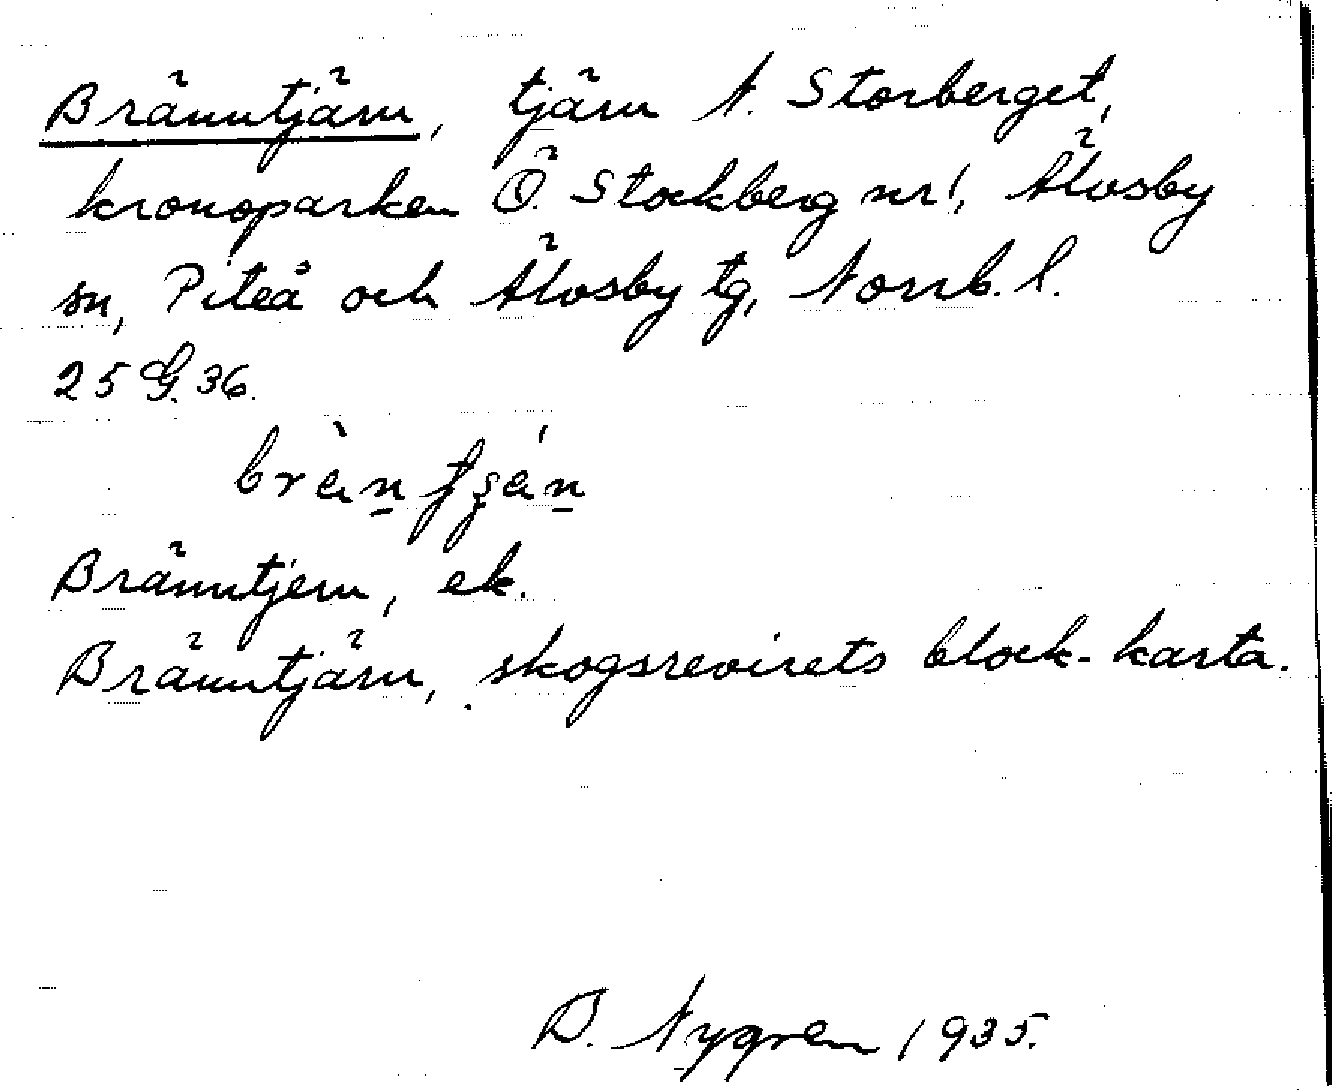 Bränntjärn, tjärn N. Storberget,
kronoparken Ö. Stockberg nr 1, Älvsby
sn, Piteå och Älvsby tg, Norrb. l.
25 G. 36.
Bränntjern, ek.
Bränntjärn, skogsrevirets block-karta.
B. Nygren 1935.